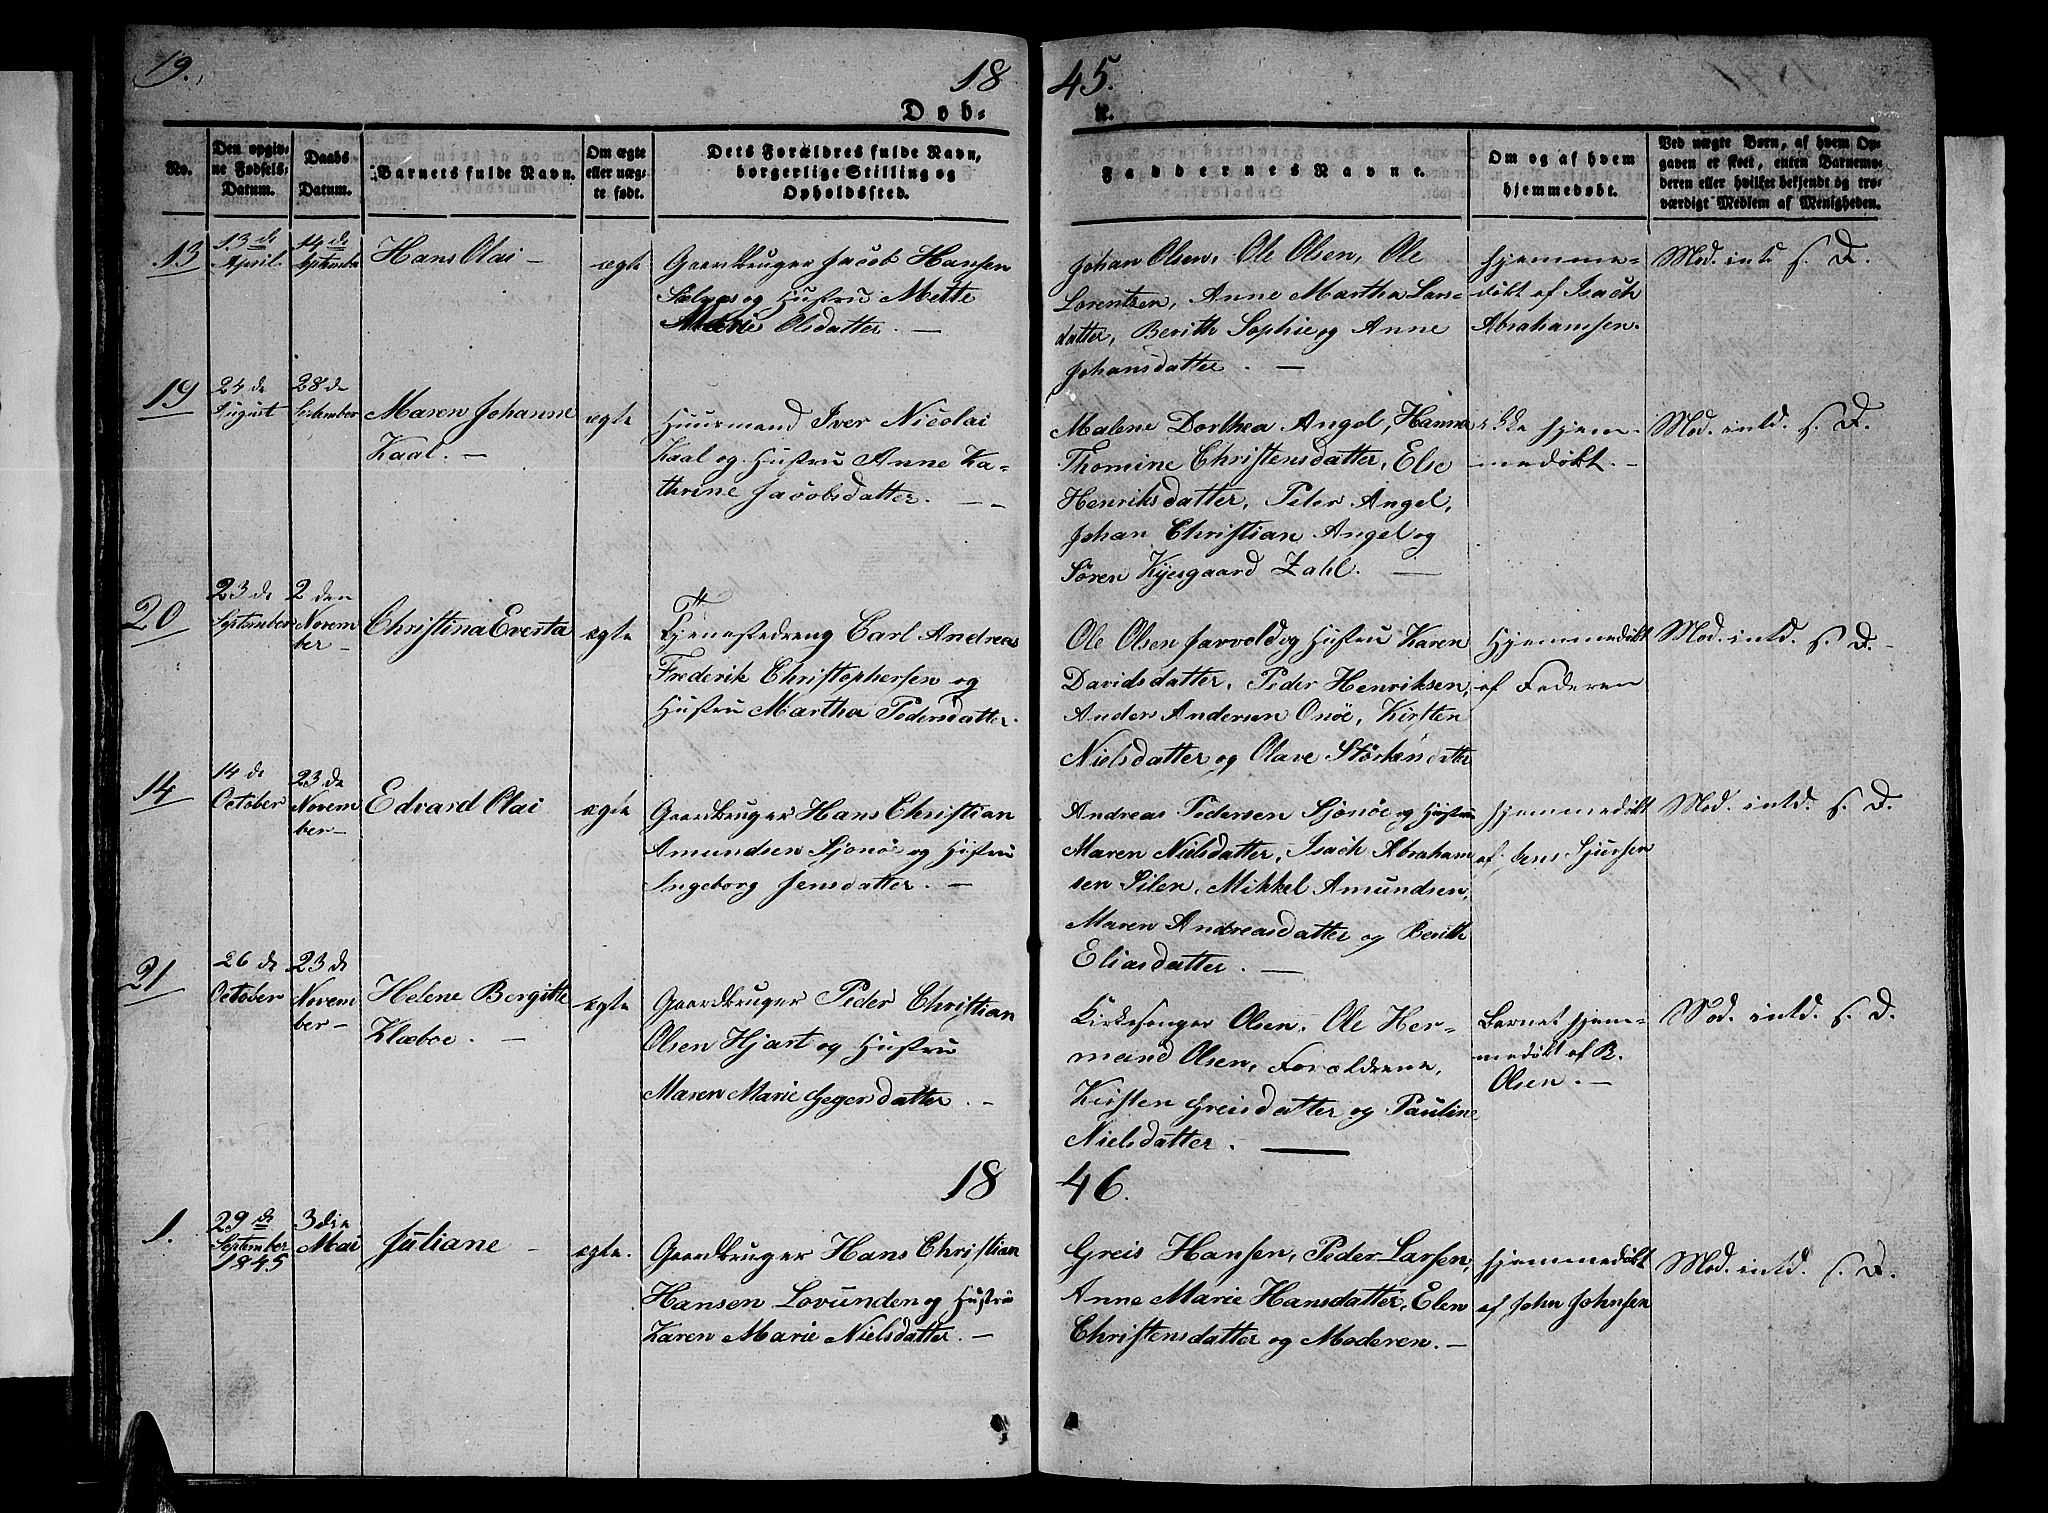 19.
18 45.
Døb- te.
No.
Den opgiv-
ne Fødsels-
Datum.
Daabs
Datum.
Barnets fulde Navn.
Om ægte
eller uæg-
te født.
Dets Forældres fulde Navn,
borgerlige Stilling og
Opholdssted.
Faddernes Navne.
Om og af hvem
hjemmedøbt.
Ved uægte Børn, af hvem Op-
gaven er skeet, enten Barnemo-
deren eller hvilket bekjendt og tro-
værdigt Medlem af Menigheden.
13
13 de
April
14 de
September
Hans Olai –
ægte
Gaardbruger Jacob Hansen
og Hustru Mette
Marie Olsdatter. –
Johan Olsen, Ole Olsen, Ole
Lorentzen, Anne Martha Lars-
datter, Berith Sophie og Anne
Johansdatter. –
Hjemme-
døbt af Isach
Abrahamsen.
Mod. intd. s. D.
19
24 de
August
28 de
September
Maren Johanne
Kaal. –
ægte
Huusmand Iver Nicolai
Kaal og Hustru Anne Ka-
thrine Jacobsdatter. –
Malene Dorthea Angel, Hanna
Thomine Christensdatter, Else
Henriksdatter, Peter Angel,
Johan Christian Angel og
Sören Kyesgaard Zahl. –
ikke hjem-
medøbt. –
Mod. intd. s. D.
20
23 de
September
2 den
Novem
ber –
Christina Eversta
ægte
Tjenestedreng Carl Andreas
Frederik Christophersen og
Hustru Martha Pedersdatter.
Ole Olsen Jarvold og Hustru Karen
Davidsdatter, Peder Henriksen,
Anders Andersen Onöe, Kirsten
Nielsdatter og Olave Störkersdatter
Hjemmedøbt
af Faderen
Mod. intd. s. D. –
14
14 de
October
23 de
Novem
ber –
Edvard Olai
ægte
Gaardbruger Hans Christian
Amundsen Sjonöe og Hustru
Ingeborg Jensdatter. –
Andreas Pedersen Sjonöe og Hustru
Maren Nielsdatter, Isach Abraham
sen Silen, Mikkel Amundsen,
Maren Andreasdatter og Berith
Eliasdatter. –
Hjemmedøbt
af Jens
Mod. intd. s. D.
21
26 de
October
23 de
Novem
ber –
Helene Bergitte
Klæboe. –
ægte
Gaardbruger Peder Christian
Olsen Hjart og Hustru
Maren Marie Gregersdatter. –
Kirkesanger Olsen, Ole Her-
mand Olsen, Forældrene,
Kirsten Greisdatter og Pauline
Nielsdatter. –
Barnet hjem-
medøbt af R.
Olsen. –
Mod. intd. s. D.
18 46.
1.
29 de
September
1845
3 die
Mai
Juliane –
ægte.
Gaardbruger Hans Christian
Hansen Lovunden og Hustru
Karen Marie Nielsdatter. –
Greis Hansen, Peder Larsen,
Anne Marie Hansdatter, Elen
Christensdatter og Moderen. –
Hjemmedøbt
af John Johnsen
Mod. intd. s. D.